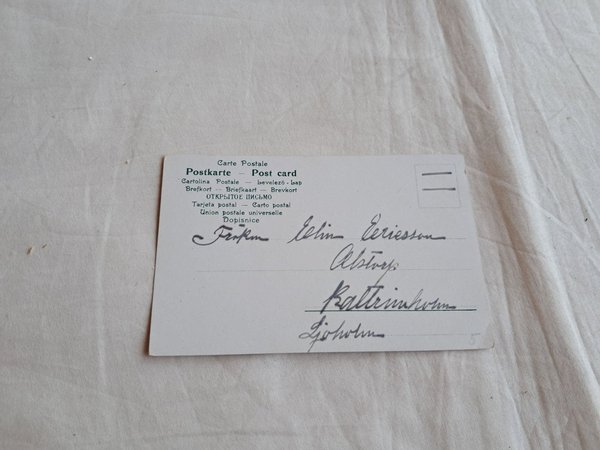 Carte Postale
Postkarte – Post card
Cartolina Postale – Levelező-Lap
Brefkort – Briefkaart – Brevkort
ОТКРЫТОЕ ПИСЬМО
Tarjeta postal – Carto postal
Union postale universelle
Dopisnice
Fröken Elin Ericsson
Alstorp
Kattrineholm
Sjöholm
5